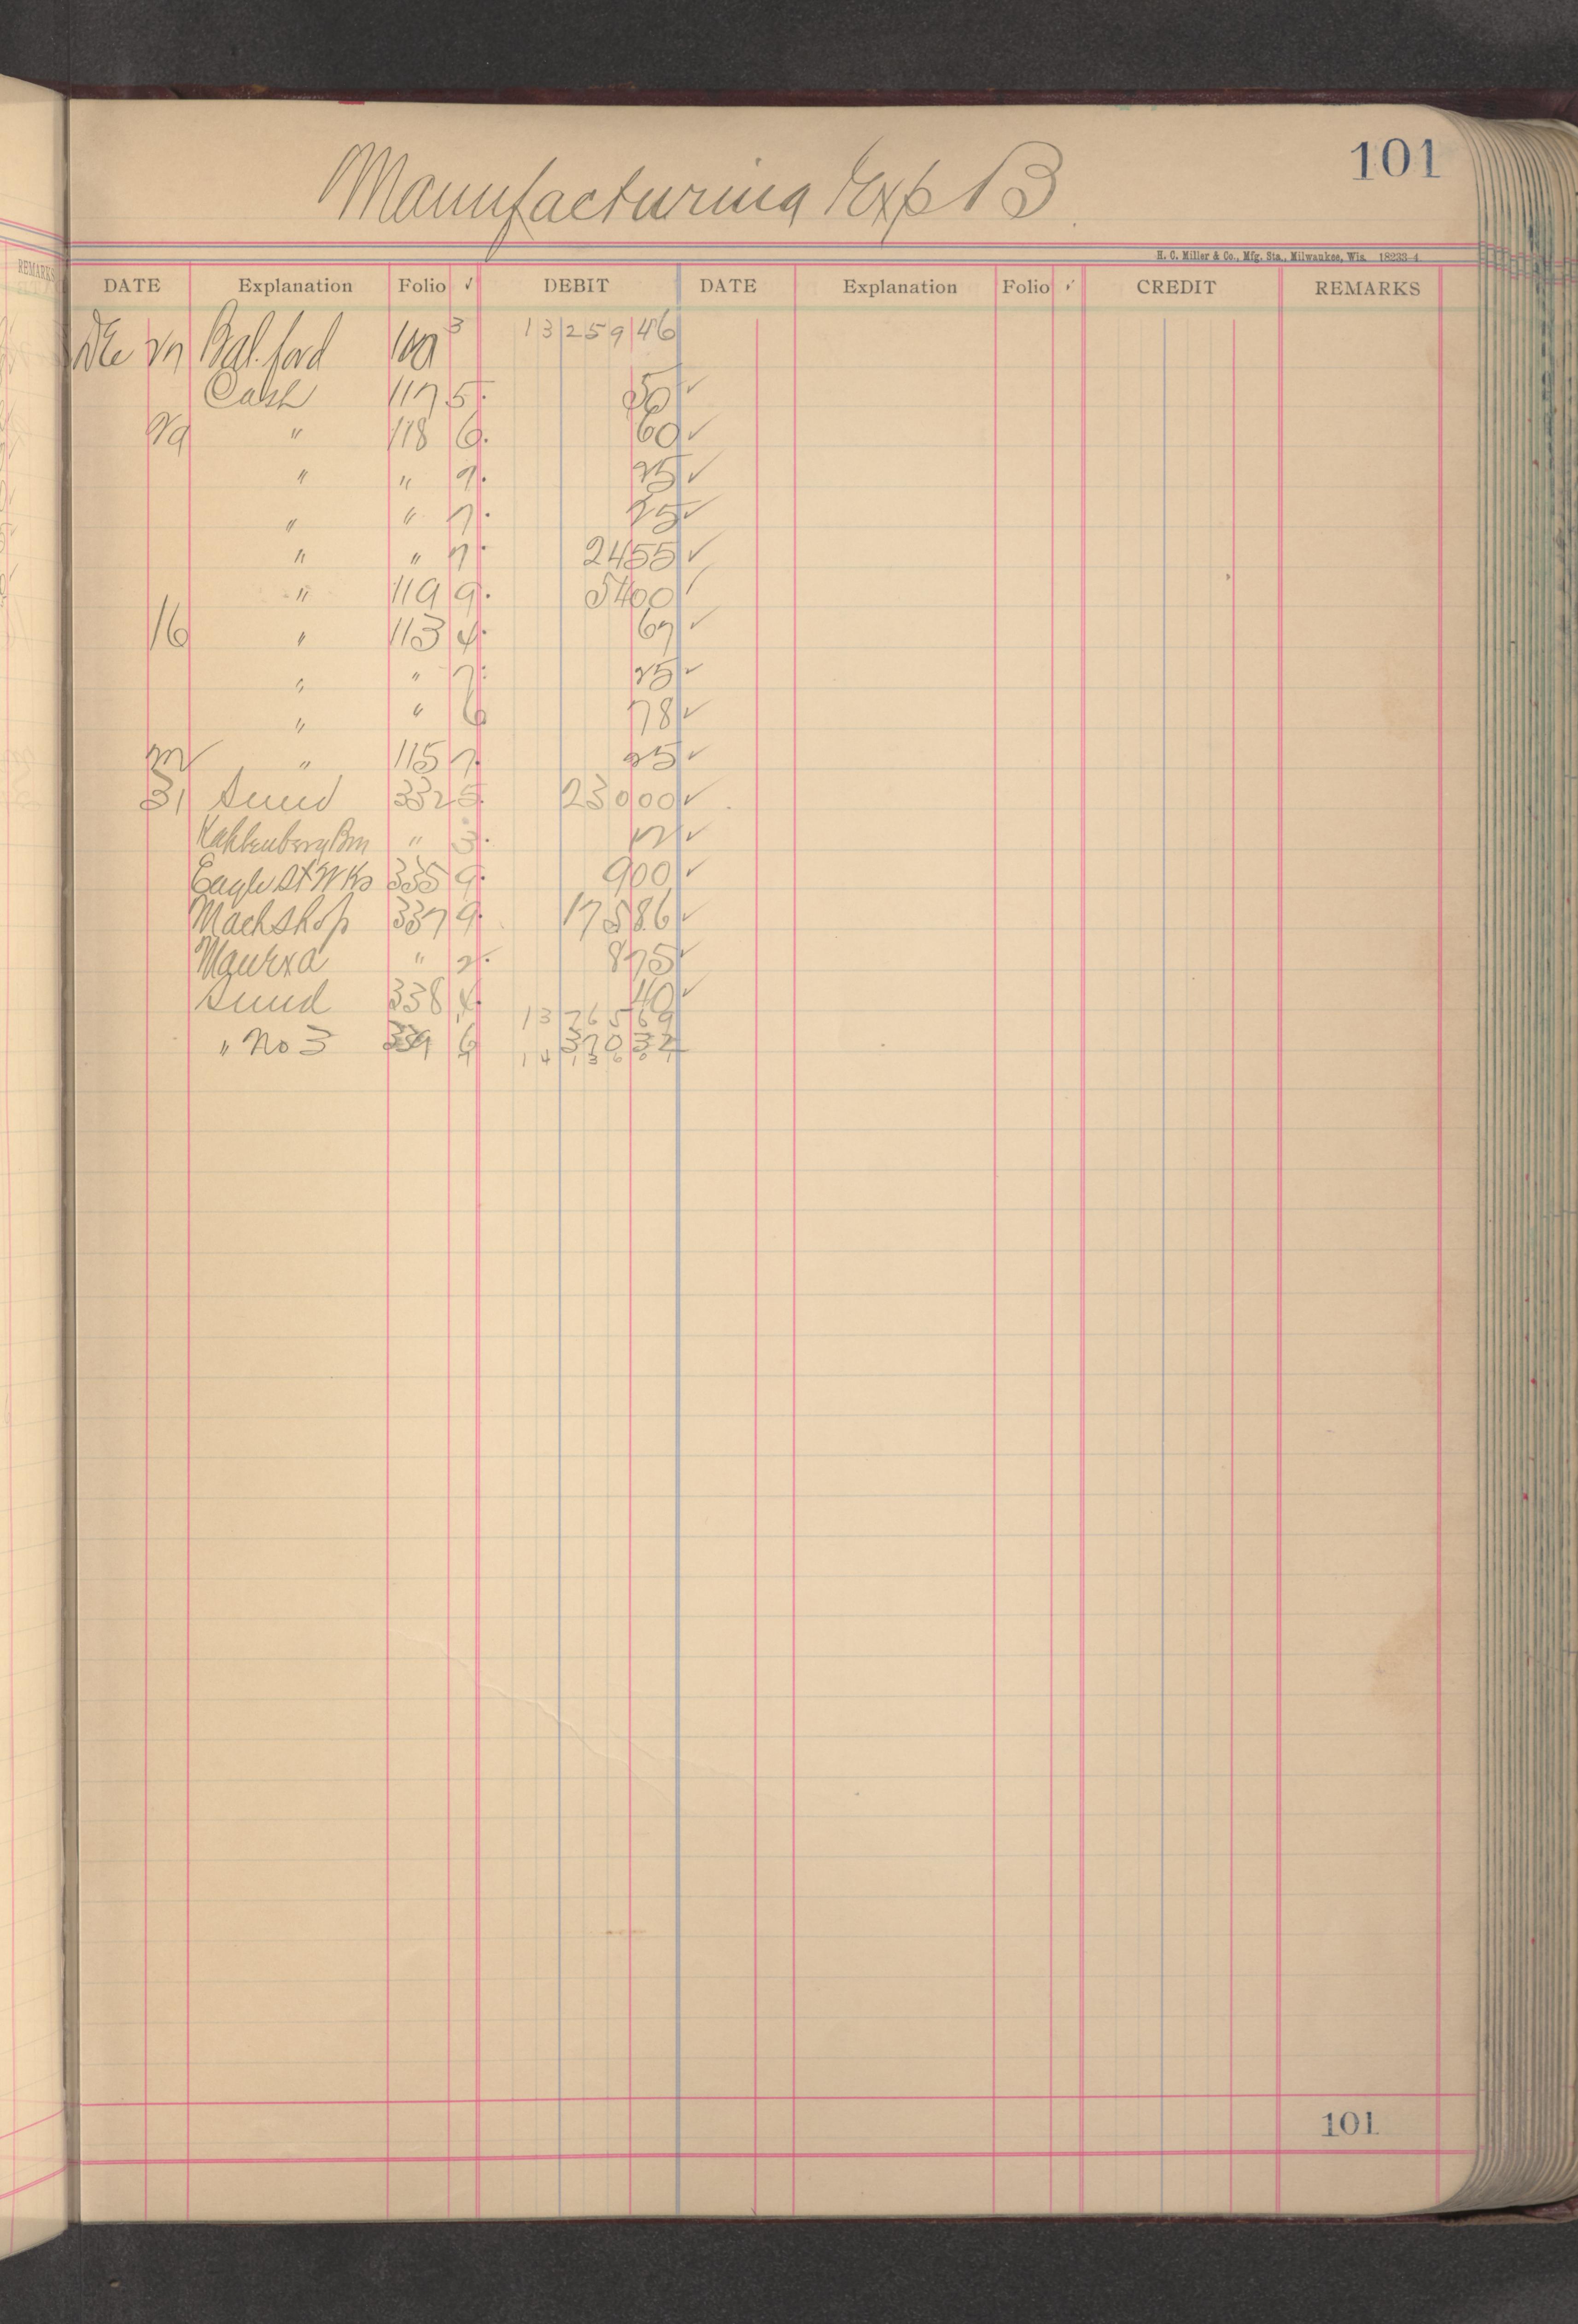 101
Manufacturing Exp B
H. C. Miller & Co., Mfg. Sta., Milwaukee, Wis. 18233-4
DATE Explanation Folio ✓ DEBIT DATE Explanation Folio ✓ CREDIT REMARKS
Dec 27 Bal. ford 100 3 13259 46
Cash 117 5. 50 ✓
29 " 118 6. 60 ✓
" " 7. 25 ✓
" " 7. 25 ✓
" " 7. 24 55 ✓
" 119 9. 54 00 ✓
16 " 113 4. 67 ✓
" " 7. 25 ✓
" " 6 78 ✓
" 115 7. 25 ✓
31 Sund 332 5. 230 00 ✓
Kahlenberg Bro " 3. ✓
Eagle St Wks 335 9. 9 00 ✓
Mach Shop 337 9. 175 86 ✓
" 2. 8 75 ✓
Sund 338 4. 40 ✓
13765 69
" No 3 339 6 370 32
14136 01
101
REMARKS